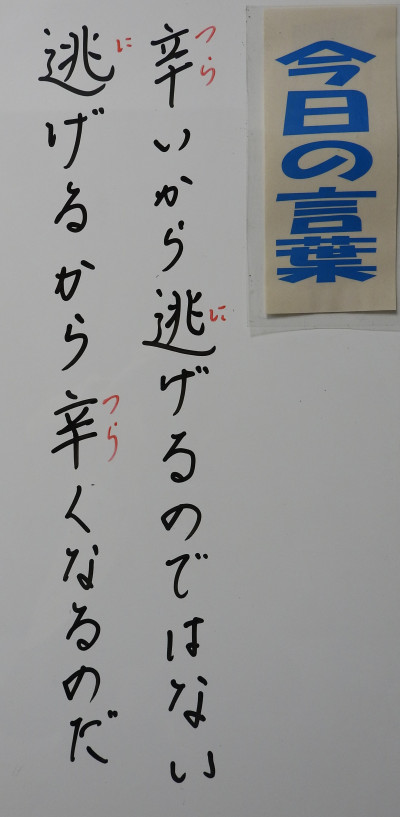 今日の言葉
辛いから逃げるのではない
つら
に
逃げるから辛くなるのだ
に
つら